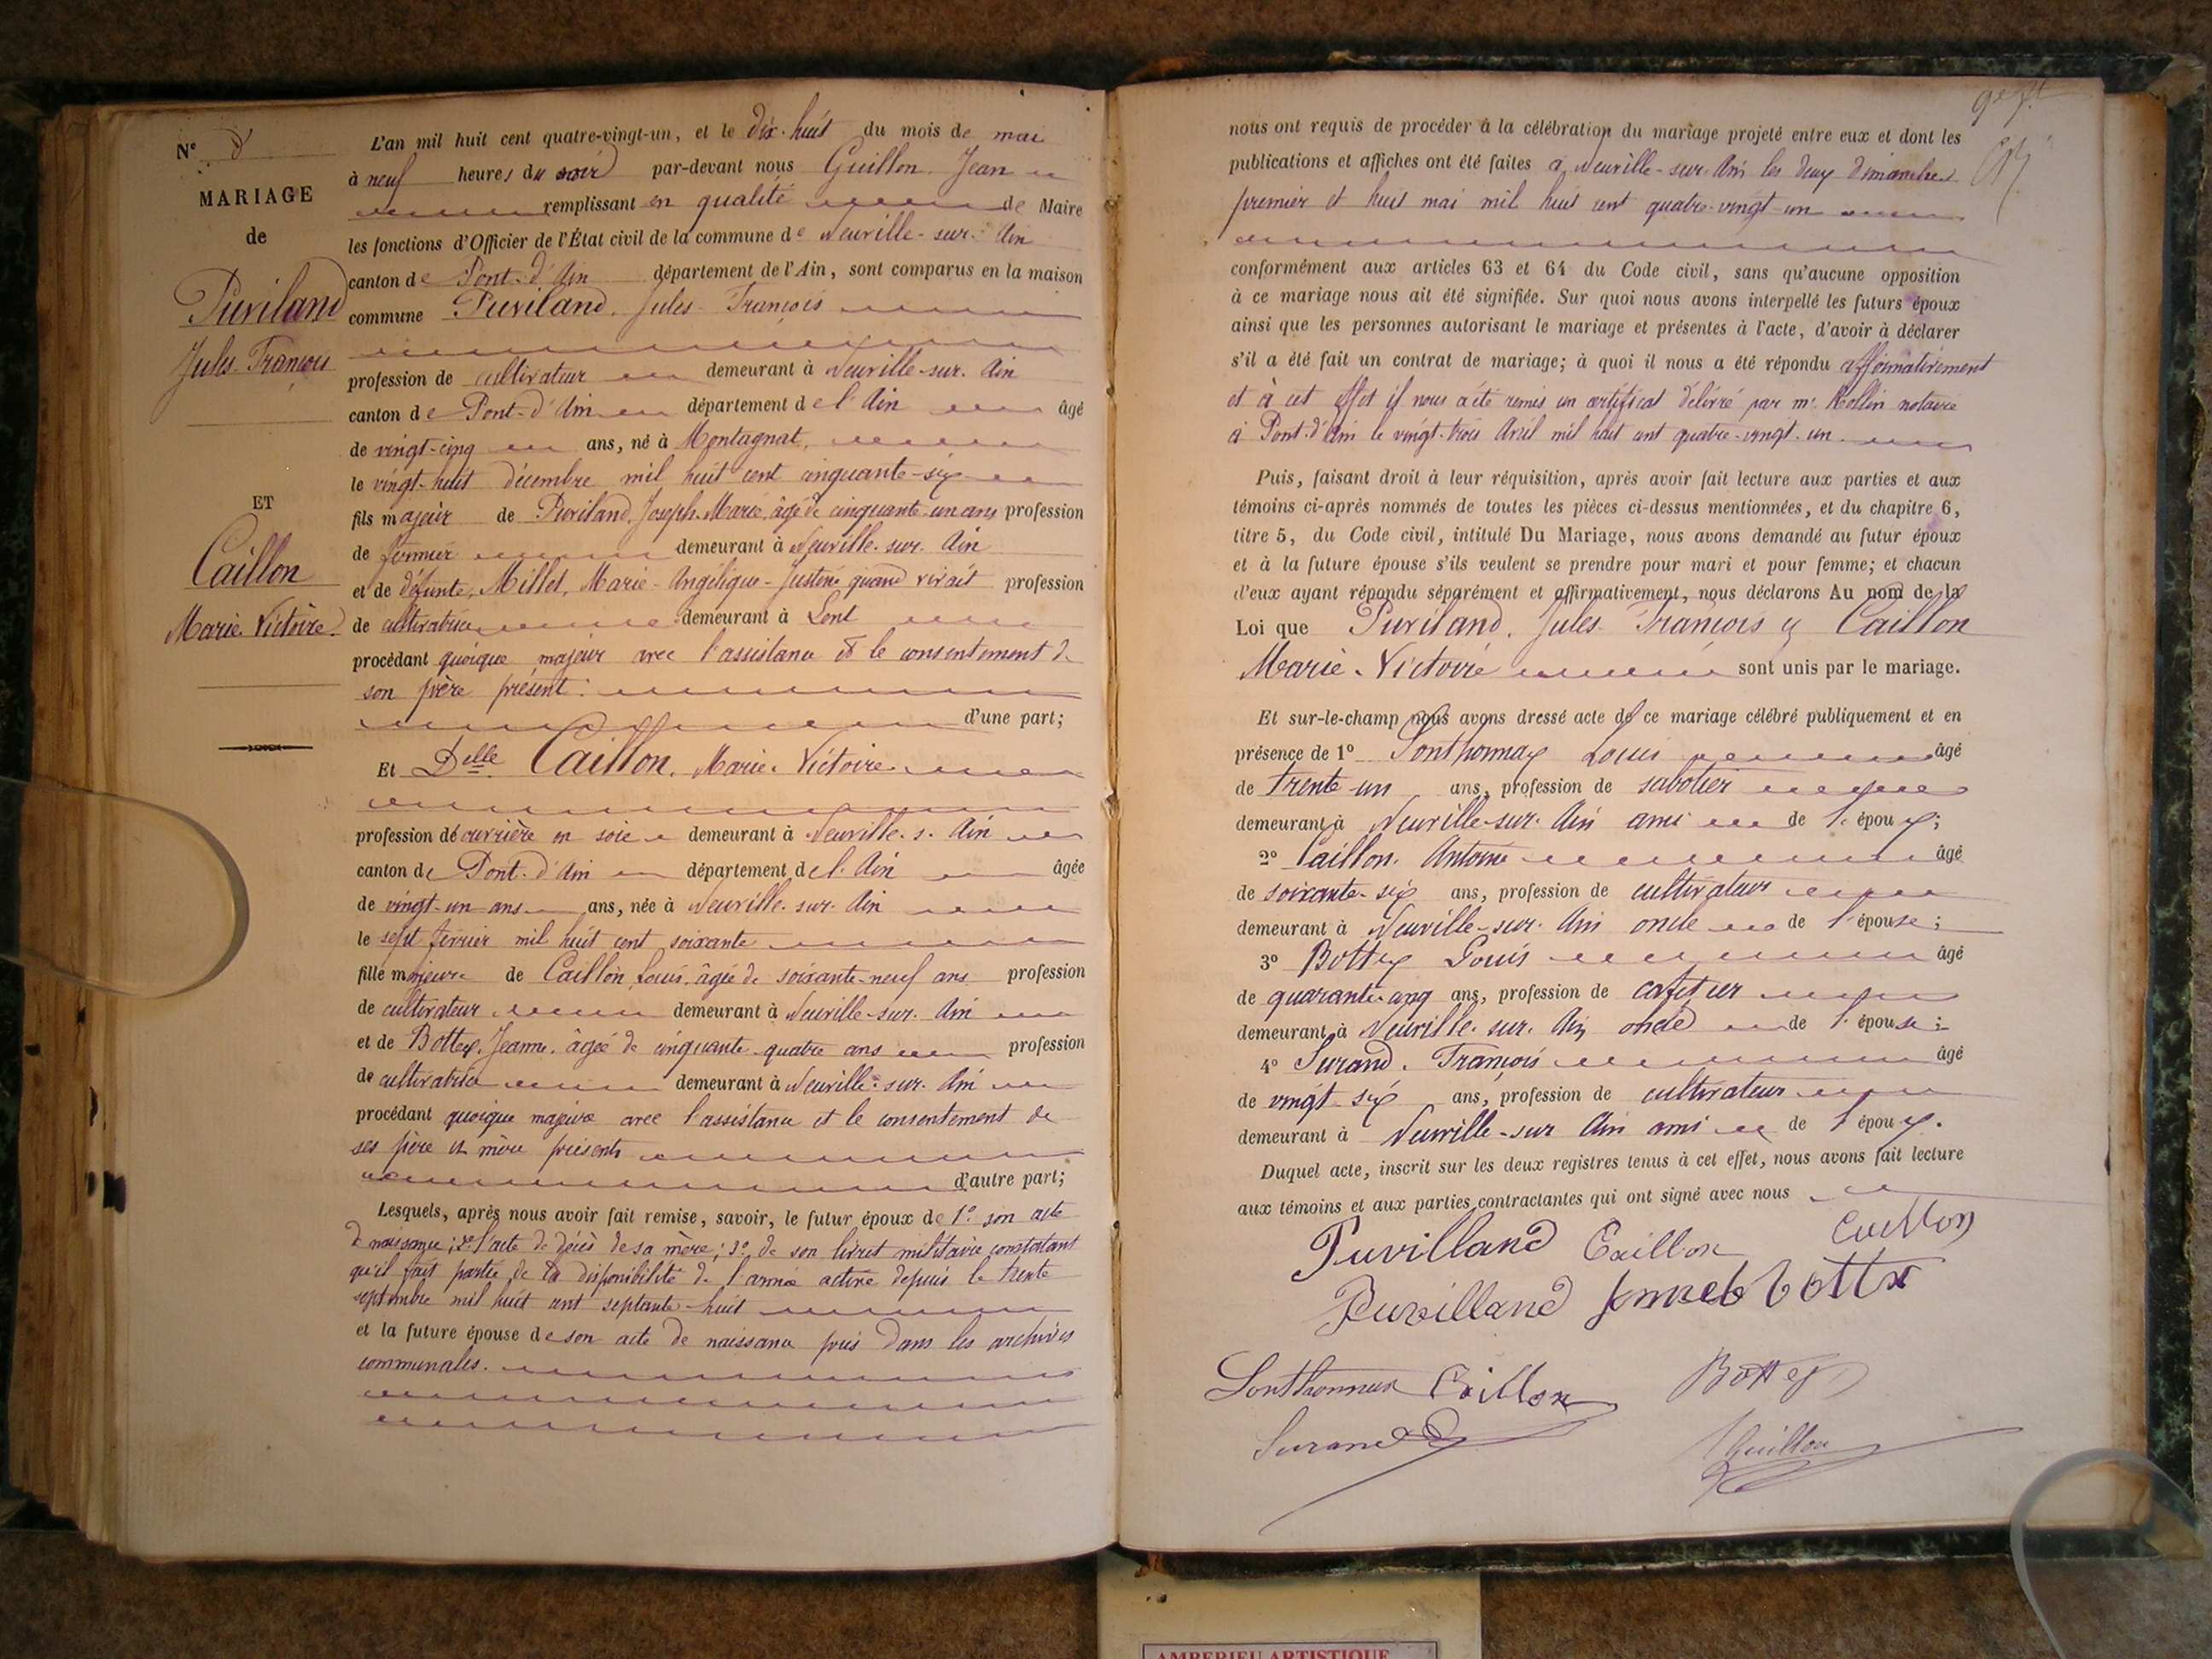 N° 8
MARIAGE
de
Puviland
Jules-François
ET
Caillon
Marie-Victoire.
L'an mil huit cent quatre-vingt-un, et le dix-huit du mois de mai
à neuf heures du soir par-devant nous Guillon Jean
remplissant en qualité de Maire
les fonctions d'Officier de l'État civil de la commune de Neuville-sur-Ain
canton de Pont-d'Ain département de l'Ain, sont comparus en la maison
commune Puviland. Jules-François
profession de cultivateur demeurant à Neuville-sur-Ain
canton de Pont-d'Ain département de l'Ain âgé
de vingt-cinq ans, né à Montagnat,
le vingt-huit décembre mil huit cent cinquante-six
fils majeur de Puviland, Joseph-Marie, âgé de cinquante-un ans profession
de fermier demeurant à Neuville-sur-Ain
et de défunte, Millet, Marie-Angélique-Justine quand vivait profession
de cultivatrice demeurant à Lent
procédant quoique majeur avec l'assistance et le consentement de
son père présent:
d'une part;
Et Delle Caillon, Marie-Victoire
profession de ouvrière en soie demeurant à Neuville-s-Ain
canton de Pont-d'Ain département de l'Ain âgée
de vingt-un ans ans, née à Neuville-sur-Ain
le sept février mil huit cent soixante
fille majeure de Caillon, Louis, âgée de soixante-neuf ans profession
de cultivateur demeurant à Neuville-sur-Ain
et de Bottex, Jeanne, âgée de cinquante-quatre ans profession
de cultivatrice demeurant à Neuville-sur-Ain
procédant quoique majeure avec l'assistance et le consentement de
ses père et mère présents
d'autre part;
Lesquels, après nous avoir fait remise, savoir, le futur époux de 1° son acte
de naissance; 2° l'acte de décès de sa mère; 3° de son livret militaire constatant
qu'il fait partie de la disponibilité de l'armée active depuis le trente
septembre mil huit cent septante-huit
et la future épouse de son acte de naissance pris dans les archives
communales.
nous ont requis de procéder à la célébration du mariage projeté entre eux et dont les
publications et affiches ont été faites à Neuville-sur-Ain les deux dimanches
premier et huit mai mil huit cent quatre-vingt-un
conformément aux articles 63 et 64 du Code civil, sans qu'aucune opposition
à ce mariage nous ait été signifiée. Sur quoi nous avons interpellé les futurs époux
ainsi que les personnes autorisant le mariage et présentes à l'acte, d'avoir à déclarer
s'il a été fait un contrat de mariage; à quoi il nous a été répondu affirmativement
et à cet effet il nous a été remis un certificat délivré par me Rollin notaire
à Pont-d'Ain le vingt-trois Avril mil huit cent quatre-vingt-un
Puis, faisant droit à leur réquisition, après avoir fait lecture aux parties et aux
témoins ci-après nommés de toutes les pièces ci-dessus mentionnées, et du chapitre 6,
titre 5, du Code civil, intitulé Du Mariage, nous avons demandé au futur époux
et à la future épouse s'ils veulent se prendre pour mari et pour femme; et chacun
d'eux ayant répondu séparément et affirmativement, nous déclarons Au nom de la
Loi que Puviland, Jules-François et Caillon
Marie-Victoire sont unis par le mariage.
Et sur-le-champ nous avons dressé acte de ce mariage célébré publiquement et en
présence de 1° Sonthonnax Louis âgé
de trente-un ans, profession de sabotier
demeurant à Neuville-sur-Ain ami de l'époux;
2° Caillon, Antoine âgé
de soixante-six ans, profession de cultivateur
demeurant à Neuville-sur-Ain oncle de l'épouse;
3° Bottex Louis âgé
de quarante-cinq ans, profession de cafetier
demeurant à Neuville-sur-Ain oncle de l'épouse;
4° Surand, François âgé
de vingt-six ans, profession de cultivateur
demeurant à Neuville-sur-Ain ami de l'époux.
Duquel acte, inscrit sur les deux registres tenus à cet effet, nous avons fait lecture
aux témoins et aux parties contractantes qui ont signé avec nous
Puvilland Caillon Caillon
Puvilland bottex
Sonthonnax Caillon Bottex
Surand Guillon
AMBERIEU ARTISTIQUE